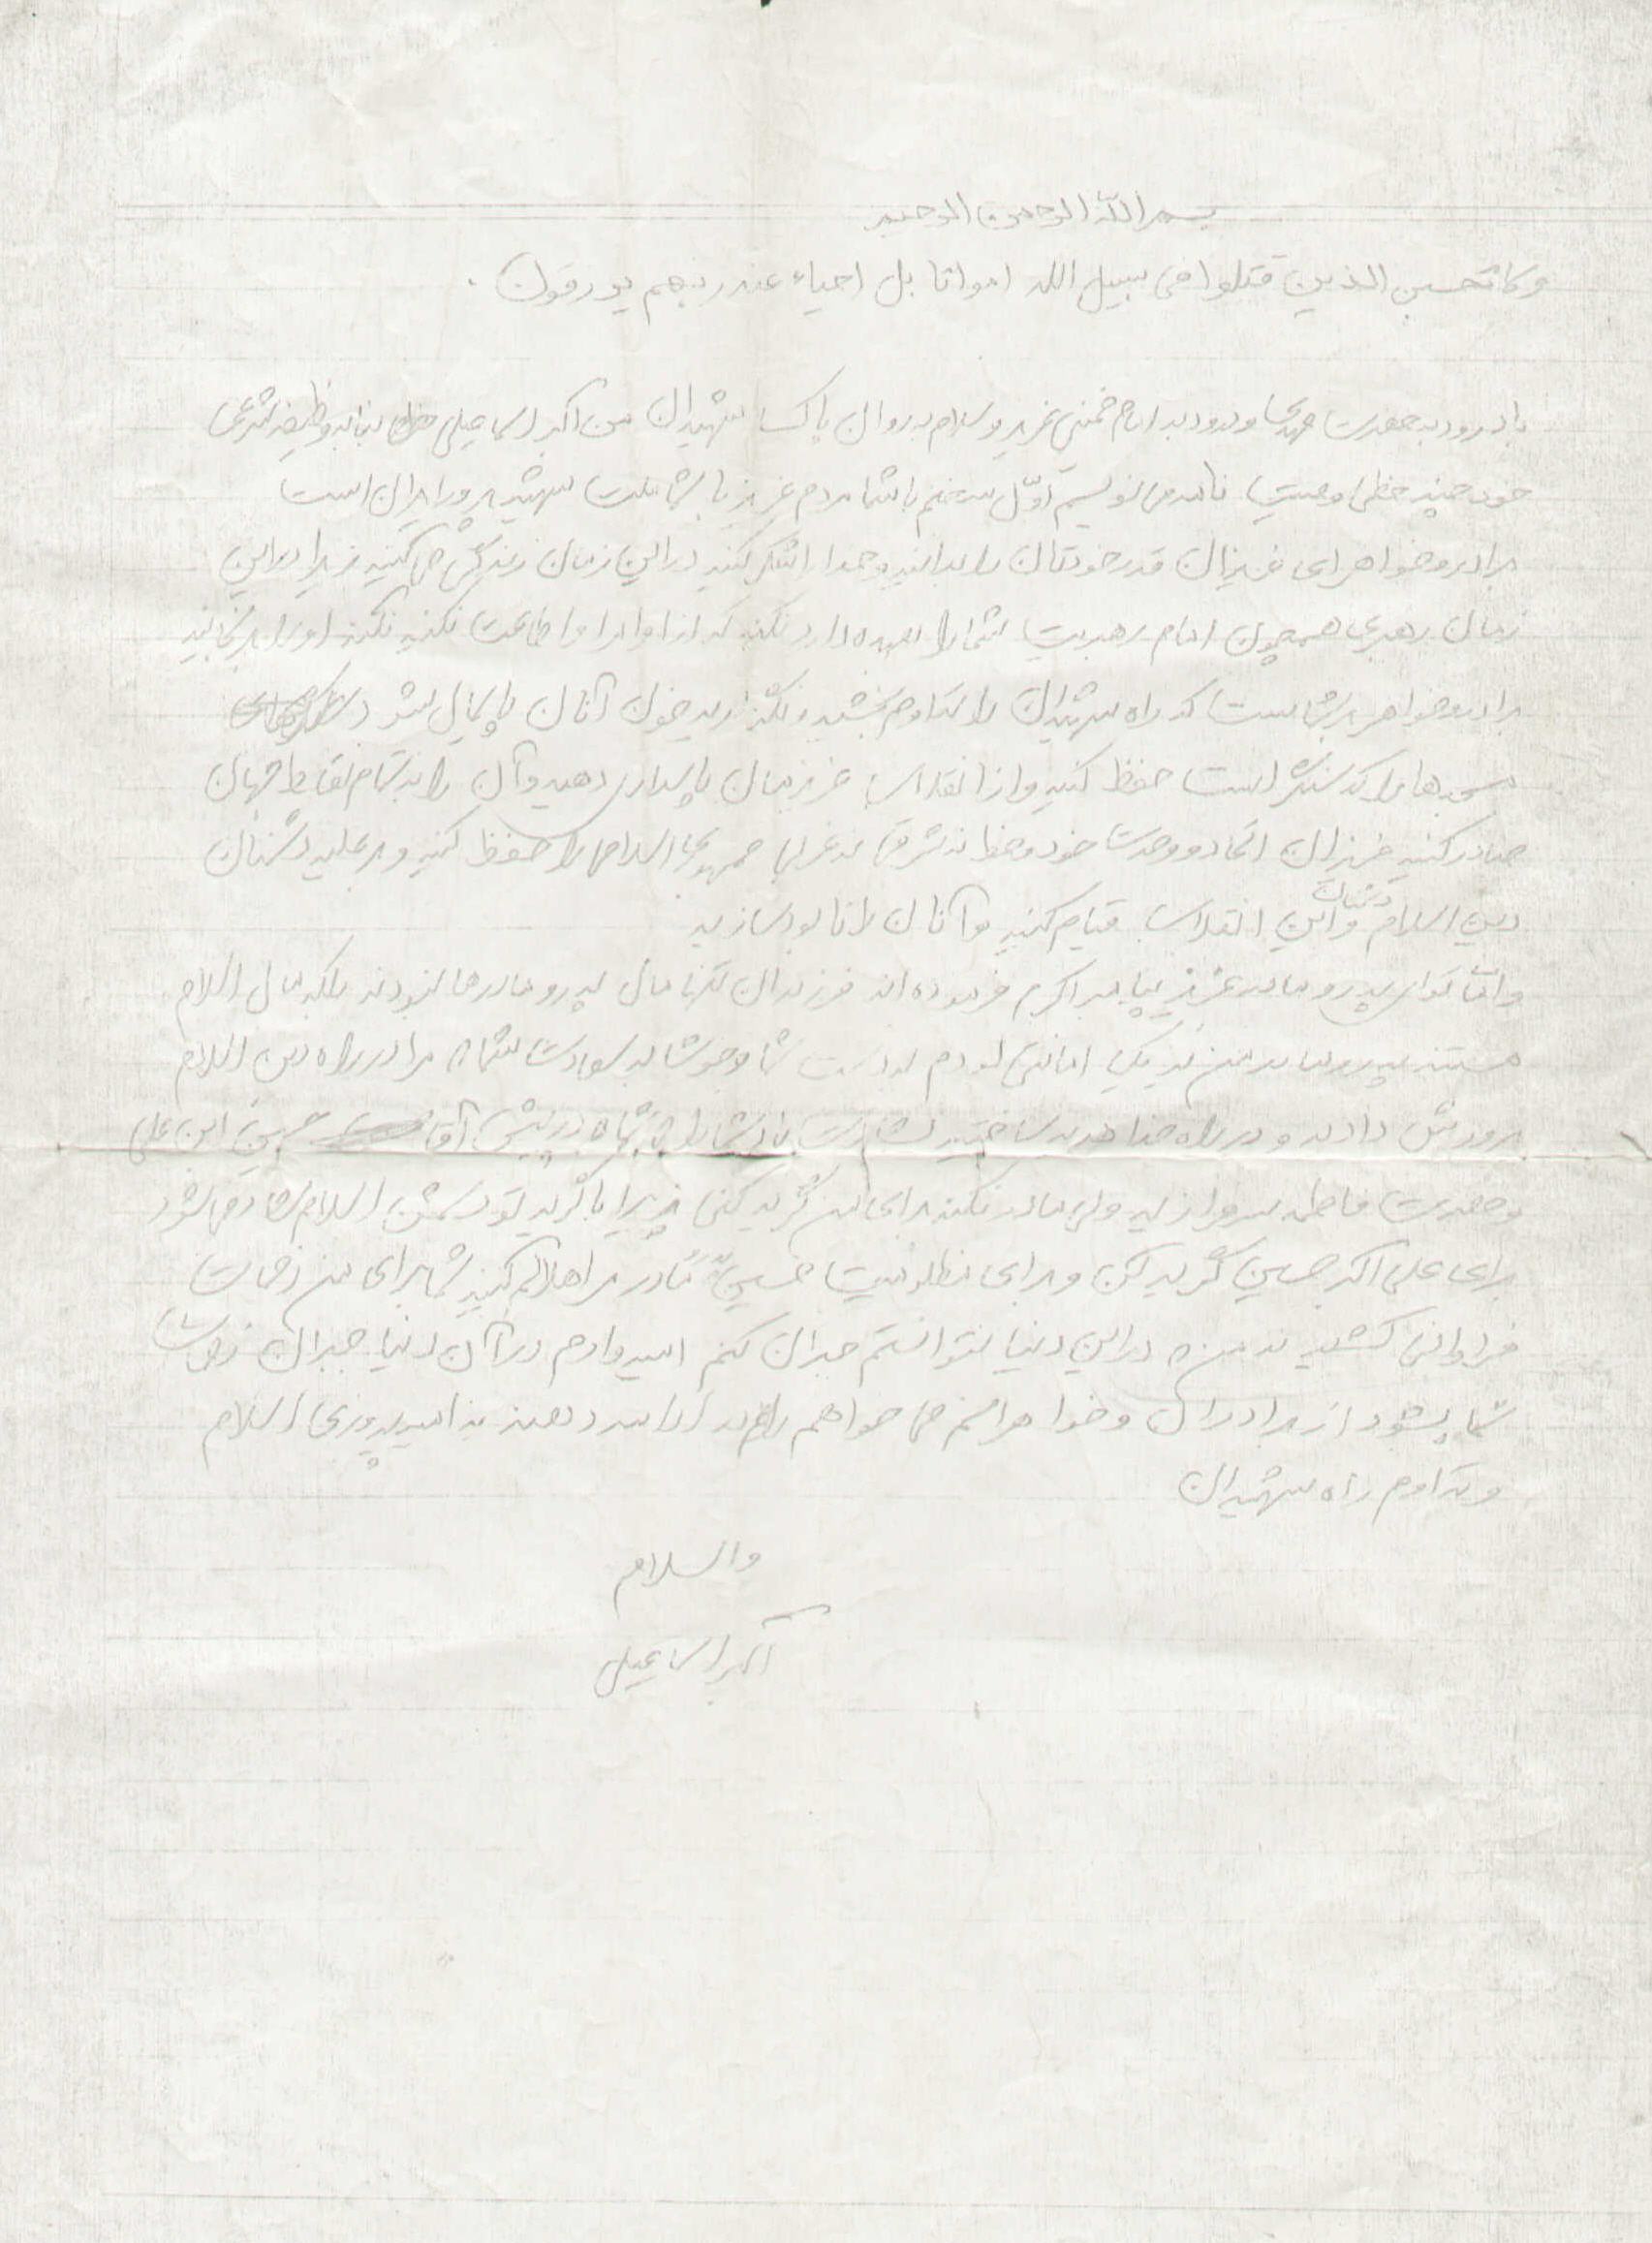 بسم الله الرحمن الرحیم
ولا تحسبن الذین قتلوا فی سبیل الله امواتا بل احیاء عند ربهم یرزقون .
با درود به حضرت مهدی و درود به امام خمینی عزیز و سلام به روان پاک شهیدان من اکبر اسماعیلی بنا به وظیفه شرعی
خود چند خطی وصیت نامه می نویسم اوّل سخنم با شما مردم عزیز با شما ملت شهید پرور ایران است
برادر و خواهرای عزیزان قدر خودتان را بدانید و خدا را شکر کنید در این زمان زندگی می کنید زیرا در این
زمان رهبری همچون امام رهبریت شما را بعهده دارد نکند که از اوامر او اطاعت نکنید نکند او را برنجانید
برادر و خواهر بر شماست که راه شهیدان را تداوم بخشید و نگذارید خون آنان پایمال شود
مسجدها را که سنگر است حفظ کنید و از انقلاب عزیزمان پاسداری دهید و آن را به تمام نقاط جهان
صادر کنید عزیزان اتحاد و وحدت خود و خط نه شرقی نه غربی جمهوری اسلامی را حفظ کنید و بر علیه دشنمان
دین اسلام و دشمنان این انقلاب قیام کنید و آنان را نابود سازید
و اما تو ای پدر و مادر عزیز پیامبر اکرم فرموده اند فرزندان تنها مال پدر و مادرها نبودند بلکه مال اسلام
هستند پدر و مادر من نیز یک امانتی بودم بدست شما و خوشا به سعادت شما که مرا در راه دین اسلام
پرورش دادید و در راه خدا هدیه ساختید شما در پیش آقا حسین ابن علی
و حضرت فاطمه سرفرازید ولی مادر نکند برای من گریه کنی زیرا با گریه تو دشمن اسلام شاد می شود
برای علی اکبر حسین گریه کن و برای مظلومیت حسین مادر مرا حلالم کنید شما برای من زحمات
فراوانی کشیدید من که در این دنیا نتوانستم جبران کنم امیدوارم در آن دنیا جبران زحمات
شما بشود از برادران و خواهرانم می خواهم راهم را ادامه دهند به امید پیروزی اسلام
و تداوم راه شهیدان
والسلام
اکبر اسماعیلی